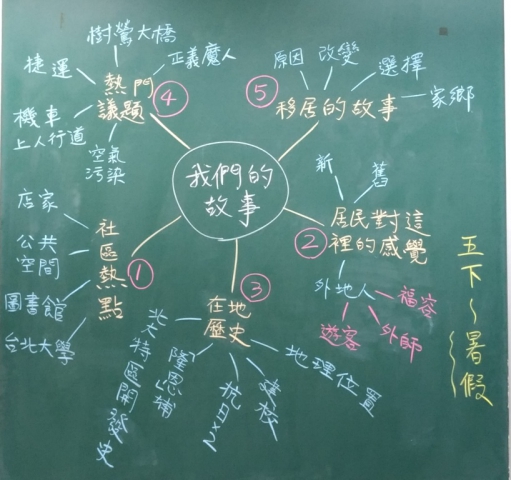 我們的
故事
①
社
區
熱
點
店家
公共
空間
圖書館
台北大學
②
居民對這
裡的感覺
新
舊
外地人
福容
外師
遊客
③
在地
歷史
北大特區開發史
「隆恩」埔
抗日×2
建校
地理位置
④
熱門
議題
樹鶯大橋
正義魔人
捷運
機車
上人行道
空氣
污染
⑤
移居的故事
原因
改變
選擇
家鄉
五下~暑假